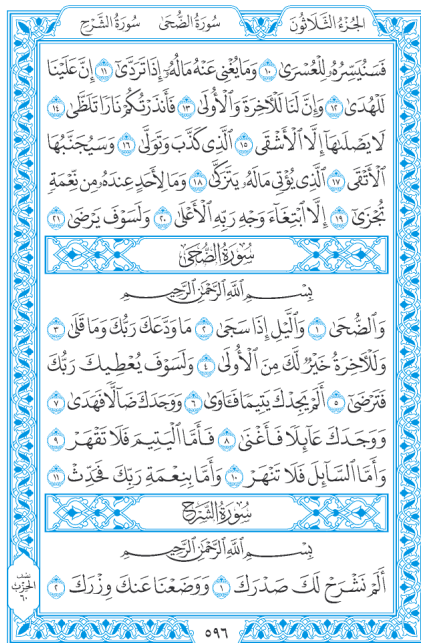 الجُزْءُ الثَّلَاثُونَ سُورَةُ الضُّحَىٰ سُورَةُ الشَّرْحِ
فَسَنُيَسِّرُهُۥ لِلْعُسْرَىٰ ١٠ وَمَا يُغْنِى عَنْهُ مَالُهُۥٓ إِذَا تَرَدَّىٰٓ ١١ إِنَّ عَلَيْنَا
لَلْهُدَىٰ ١٢ وَإِنَّ لَنَا لَلْءَاخِرَةَ وَٱلْأُولَىٰ ١٣ فَأَنذَرْتُكُمْ نَارًا تَلَظَّىٰ ١٤
لَا يَصْلَىٰهَآ إِلَّا ٱلْأَشْقَى ١٥ ٱلَّذِى كَذَّبَ وَتَوَلَّىٰ ١٦ وَسَيُجَنَّبُهَا
ٱلْأَتْقَى ١٧ ٱلَّذِى يُؤْتِى مَالَهُۥ يَتَزَكَّىٰ ١٨ وَمَا لِأَحَدٍ عِندَهُۥ مِن نِّعْمَةٍ
تُجْزَىٰٓ ١٩ إِلَّا ٱبْتِغَآءَ وَجْهِ رَبِّهِ ٱلْأَعْلَىٰ ٢٠ وَلَسَوْفَ يَرْضَىٰ ٢١
سُورَةُ الضُّحَىٰ
بِسْمِ ٱللَّهِ ٱلرَّحْمَٰنِ ٱلرَّحِيمِ
وَٱلضُّحَىٰ ١ وَٱلَّيْلِ إِذَا سَجَىٰ ٢ مَا وَدَّعَكَ رَبُّكَ وَمَا قَلَىٰ ٣
وَلَلْءَاخِرَةُ خَيْرٌ لَّكَ مِنَ ٱلْأُولَىٰ ٤ وَلَسَوْفَ يُعْطِيكَ رَبُّكَ
فَتَرْضَىٰٓ ٥ أَلَمْ يَجِدْكَ يَتِيمًا فَـَٔاوَىٰ ٦ وَوَجَدَكَ ضَآلًّا فَهَدَىٰ ٧
وَوَجَدَكَ عَآئِلًا فَأَغْنَىٰ ٨ فَأَمَّا ٱلْيَتِيمَ فَلَا تَقْهَرْ ٩
وَأَمَّا ٱلسَّآئِلَ فَلَا تَنْهَرْ ١٠ وَأَمَّا بِنِعْمَةِ رَبِّكَ فَحَدِّثْ ١١
سُورَةُ الشَّرْحِ
بِسْمِ ٱللَّهِ ٱلرَّحْمَٰنِ ٱلرَّحِيمِ
أَلَمْ نَشْرَحْ لَكَ صَدْرَكَ ١ وَوَضَعْنَا عَنكَ وِزْرَكَ ٢
نصف
الحزب
٦٠
٥٩٦